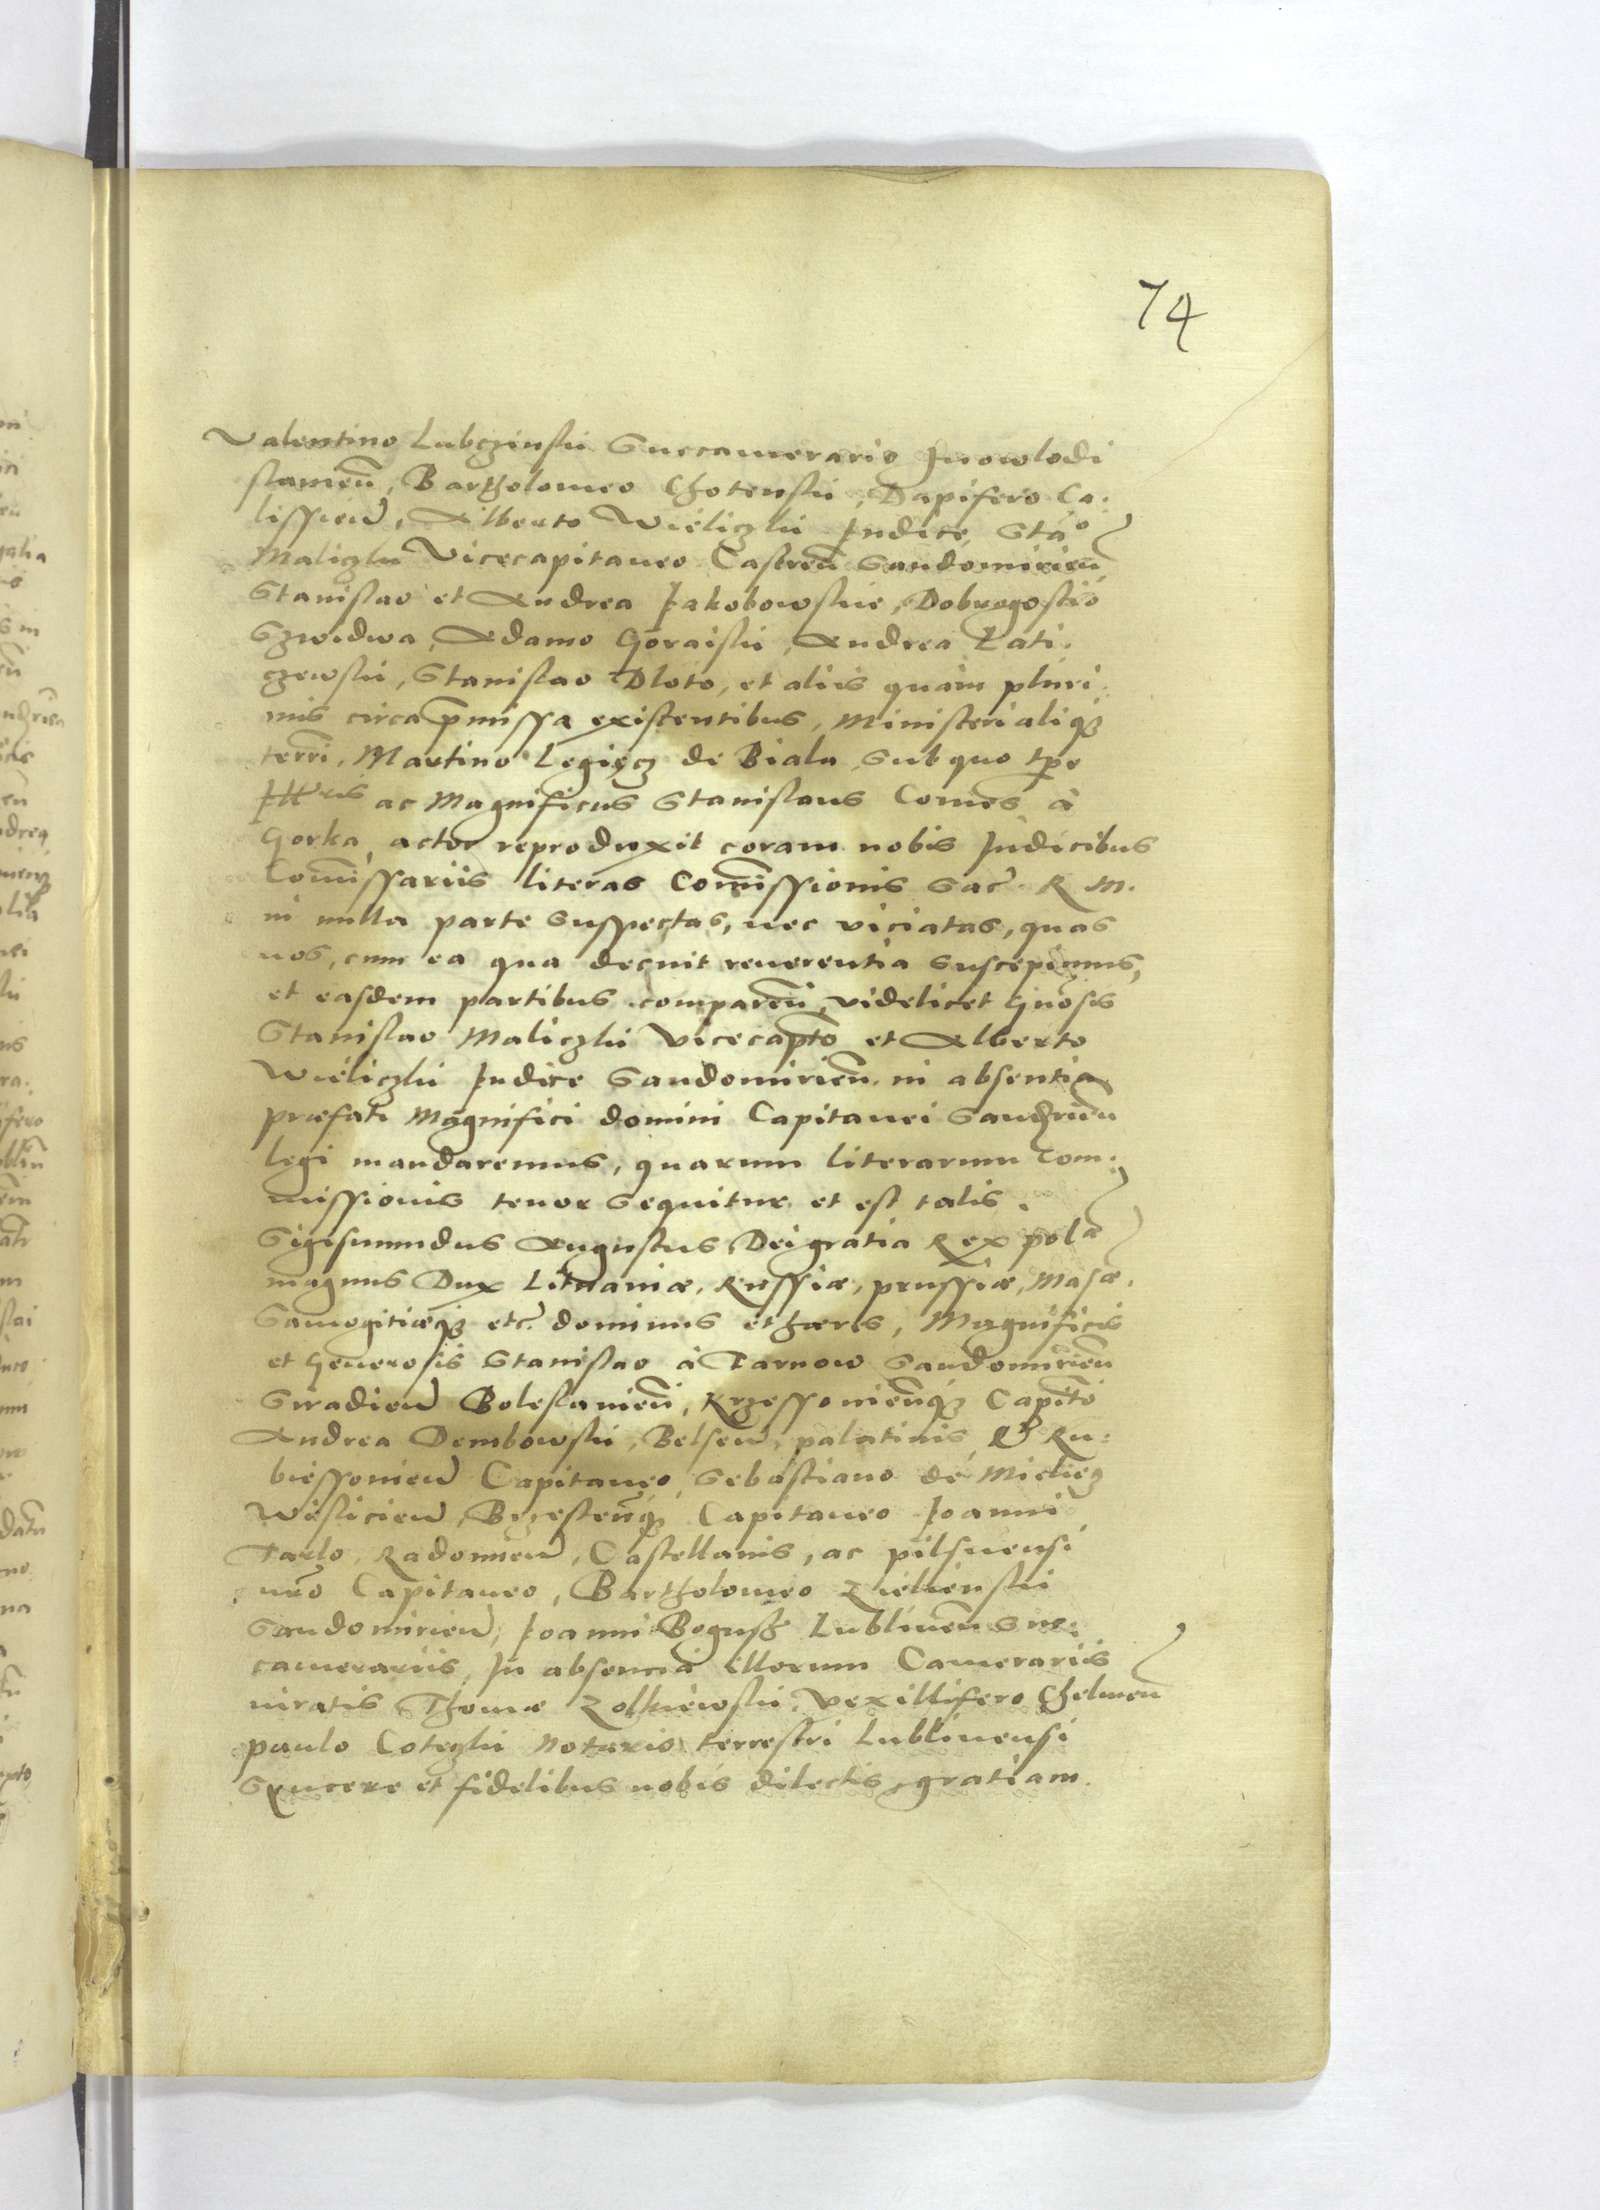 74
Valentino Lubczinski Succamerario Jnowlodi
slamien̄, Bartholomeo Chotenski, Dapifero Ca:
lissien̄, Alberto Wieliczki Judice, Stao
Maliczki Vicecapitaneo Castren̄ Sandomirien̄
Stanislao et Andrea Jakobowskie, Dobrogostio
Szwidwa, Adamo Goraiski, Andrea Lati:
czewski, Stanislao Dloto, et aliis quàm pluri:
mis circa p̄missa existentibus, Ministerialiq3
terrī, Martino Legięcz de Biala, sub quo tp̄e
Jllris ac Magnificus Stanislaus Comes à
Gorka, actor reproduxit coram nobis Judicibus
Com̄issariis literas Com̄issionis Sac. R M.
in nulla parte suspectas, nec viciatas, quas
nos, cum ea qua decuit reuerentia suscepimus,
et easdem partibus comparen̄, videlicet Gn̄osis
Stanislao Maliczki Vicecap̄to et Alberto
Wieliczki Judice Sandomirien̄ in absentia
præfati Magnifici domini Capitanei Sandrien̄
legi mandaremus, quarum literarum Com:
missionis tenor sequitur et est talis.
Sigismundus Augustus Dei gratia Rex Polæ
magnus Dux Lituaniæ, Russiæ, Prussiæ, Masæ.
Samogitiæq3 etc. dominus et hæres, Magnificis
et Generosis Stanislao à Tarnow Sandomirien̄
Siradien̄ Boleslauien̄, Krzessouien̄q3 Capito
Andrea Dembowski, Belsen̄, palatinis, & Ru:
biessouien̄ Capitaneo, Sebastiano de Mieliecz
Wislicien̄, Brzesten̄q3 Capitaneo Joanni
Tarlo, Radomien̄, Castellanis, ac pilsnensi
nr̄o Capitaneo, Bartholomeo Zielienski
Sandomirien̄, Joanni Bogusz Lublinen̄ Suc:
camerariis, in absencia illorum Camerariis
iuratis Thomæ Zolkiewski, vexillifero Chelmen̄
paulo Coteczki Notario terrestri Lublinensi
Syncere et fidelibus nobis dilectis, gratiam.